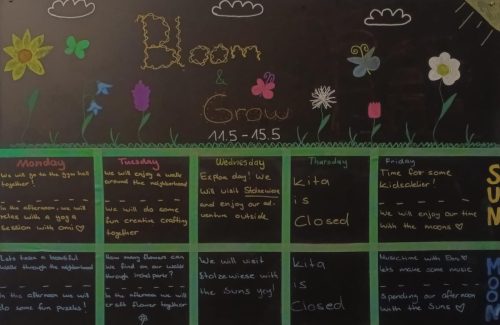 Bloom
&
Grow
11.5 - 15.5
Monday
We will go to the gym hall
together!
In the afternoon, we will
relax with a yoga
session with omi ♡
Tuesday
We will enjoy a walk
around the neighborhood
We will do some
fun creative crafting
together
Wednesday
Explore day! We
will visit Stolzewiese
and enjoy our ad-
venture outside
Thursday
Kita
is
Closed
Friday
Time for some
kidsatelier!
We will enjoy our time
with the moons ♡
SUN
Lets take a beautiful
walk through the neighborhood
In the afternoon we will
do some fun puzzles!
How many flowers can
we find on our walk
through local parks?
In the afternoon we will
craft flower together
We will visit
Stolzewiese with
the Suns yay!
Kita
is
Closed
Musictime with
lets make some music
Spending our afternoon
with the Suns ♡
MOON